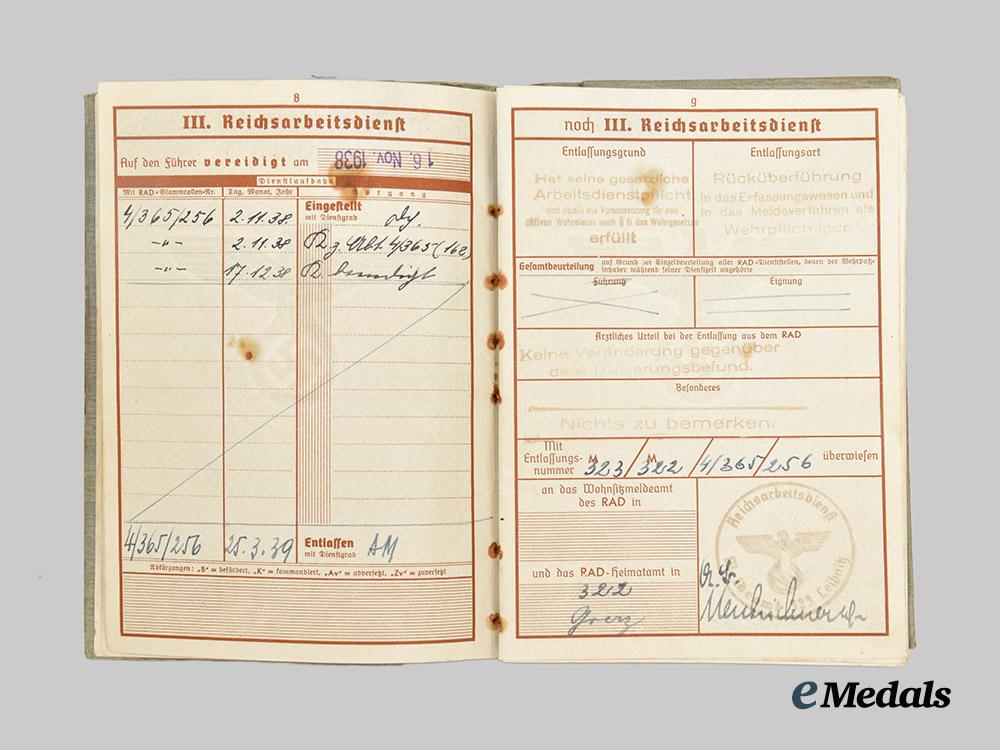 8
III. Reichsarbeitsdienst
Auf den Führer vereidigt am 16. Nov. 1938
Dienstlaufbahn
Mit RAD-Stammrollen-Nr. Tag, Monat, Jahr Vorgang
Eingestellt
mit Dienstgrad
4/365/256 2.11.38.
-"- 2.11.38 z. Abt. 4/365 (162)
-"- 17.12.38
4/365/256 25.3.39 Entlassen AM
mit Dienstgrad
Abkürzungen: „B" = befördert, „K" = kommandiert, „Av" = adversetzt, „Zv" = zuversetzt
9
noch III. Reichsarbeitsdienst
Entlassungsgrund
Hat seine gesetzliche
Arbeitsdienstpflicht
und damit die Voraussetzung für den
aktiven Wehrdienst nach § 8 des Wehrgesetzes
erfüllt
Entlassungsart
Rücküberführung
in das Erfassungswesen und
in das Meldeverfahren als
Wehrpflichtiger
Gesamtbeurteilung auf Grund der Einzelbeurteilung aller RAD-Dienststellen, denen der Wehrpaß-
inhaber während seiner Dienstzeit angehörte
Führung
Eignung
Ärztliches Urteil bei der Entlassung aus dem RAD
Keine Veränderung gegenüber
dem Musterungsbefund.
Besonderes
Nichts zu bemerken.
Mit
Entlassungs-
nummer M 323/M 322/4/365/256 überwiesen
an das Wohnsitzmeldeamt
des RAD in
und das RAD-Heimatamt in
322
Graz
Reichsarbeitsdienst
Leibnitz
eMedals